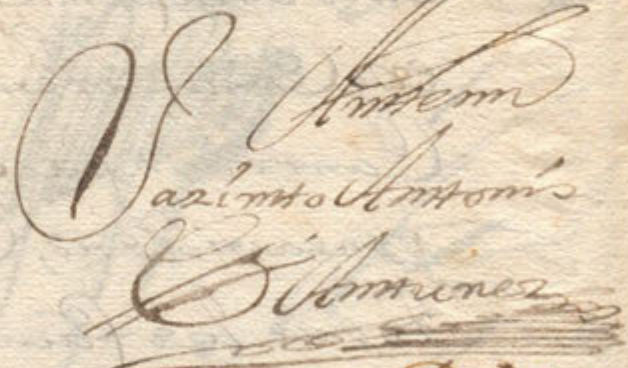 Ante mi
Jazinto Antonio
Antunez